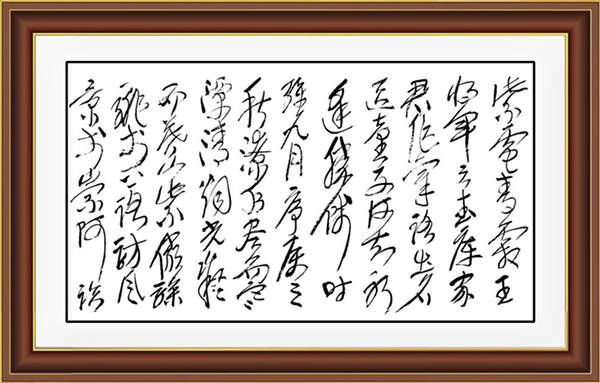 紫電青霜王
将軍之武庫家
君作宰路出名
区童子何知躬
逢勝餞时
維九月序属三
秋潦水尽而寒
潭清烟光凝
而暮山紫儼驂
騑於上路訪風
景於崇阿臨